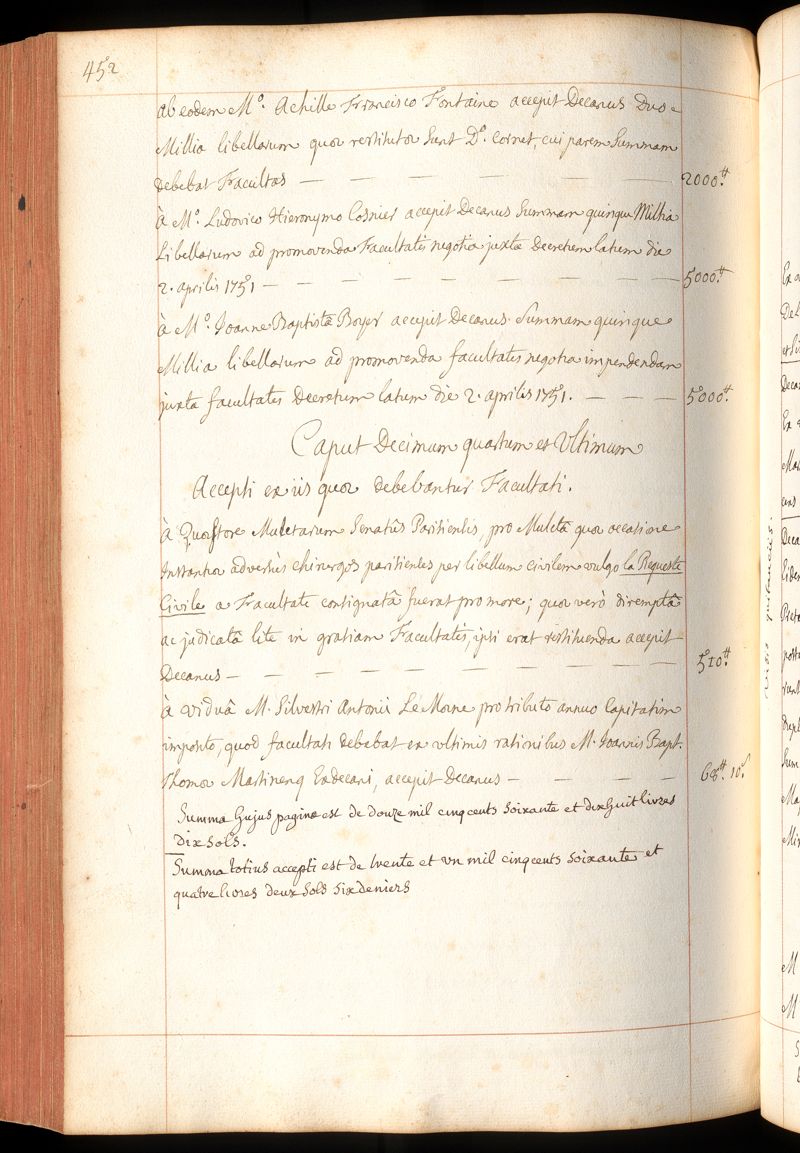 452
ab eodem M.º Achille Francisco Fontaine accepit Decanus Duo
Millia libellarum quæ restitutæ sunt D.º Cornet, cui parem Summam
debebat Facultas — — — — — — — 2000.ᵗᵗ
à M.º Ludovico Hieronymo Cosnier accepit Decanus Summam quinque Millia
Libellarum ad promovenda Facultatis negotia juxta Decretum latum die
2. aprilis 1751 — — — — — — — — 5000.ᵗᵗ
à M.º Joanne Baptistâ Boyer accepit Decanus Summam quinque
Millia libellarum ad promovenda facultatis negotia impendendam
juxta facultatis Decretum latum die 2. aprilis 1751. — — — 5000.ᵗᵗ
Caput Decimum quartum et Ultimum
Accepti ex iis quæ debebantur Facultati.
à Quæstore Mulctarum Senatûs Parisiensis, pro Mulctâ quæ occasione
Instantiæ adversùs chirurgos parisienses per libellum civilem vulgo la Requeste
Civile a Facultate consignata fuerat pro more; quæ verò diremptâ
ac judicatâ lite in gratiam Facultatis, ipsi erat restituenda accepit
Decanus — — — — — — — — 510.ᵗᵗ
à viduâ M. Silvestri Antonii Le Moine pro tributo annuo Capitatim
imposito, quod facultati debebat ex ultimis rationibus M. Joannis Bapt.
Thomæ Martinenq Exdecani, accepit Decanus — — — — 68.ᵗᵗ 10.ˢ
Summa hujus paginæ est de douze mil cinq cents soixante et dixhuit livres
Dix sols.
Summa totius accepti est de trente et un mil cinq cents soixante et
quatre livres deux sols six deniers